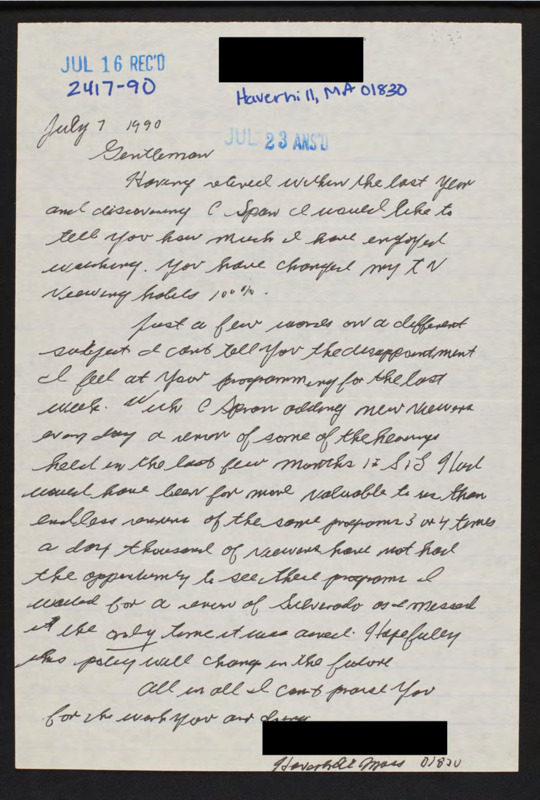 JUL 16 REC'D
2417-90
Haverhill, MA 01830
July 7 1990
JUL 23 ANS'D
Gentleman
Having retired within the last year
and discovering C Span I would like to
tell you how much I have enjoyed
watching. You have changed my T V
viewing habits 100%.
Just a few words on a different
subject I can't tell you the disappointment
I feel at your programming for the last
week. With C Span adding new viewers
every day a rerun of some of the hearings
held in the last few months i.e S & L Hud
would have been far more valuable to us than
endless reruns of the same programs 3 or 4 times
a day thousand of viewers have not had
the opportunity to see these programs I
waited for a rerun of Silverado as I missed
it the only time it was aired. Hopefully
this policy will change in the future
All in all I can't praise you
for the work you are doing
Haverhill Mass 01830